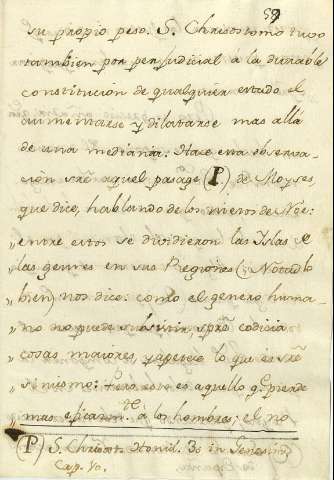 59
su propio peso. S. Chrisostomo tuvo
tambien por perjudicial á la durable
constitucion de qualquier estado el
aumentarse y dilatarse mas allá
de una mediania. Hace esta observa-
cion sre aquel pasage (P) de Moyses,
que dice, hablando de los nietos de Noe:
„ entre estos se dividieron las Islas de
„ las gentes en sus Regiones (: Notadlo
„ bien) nos dice: como el genero huma-
„ no no puede subsistir, spre codicia
„ cosas maiores, y apetece lo que es sre
„ si mismo: Pero esto es aquello q. pierde
„ mas eficazm.te á los hombres; el no
(P) S. Chrisost. Homil. 30 in Genesim
Cap. Vo.